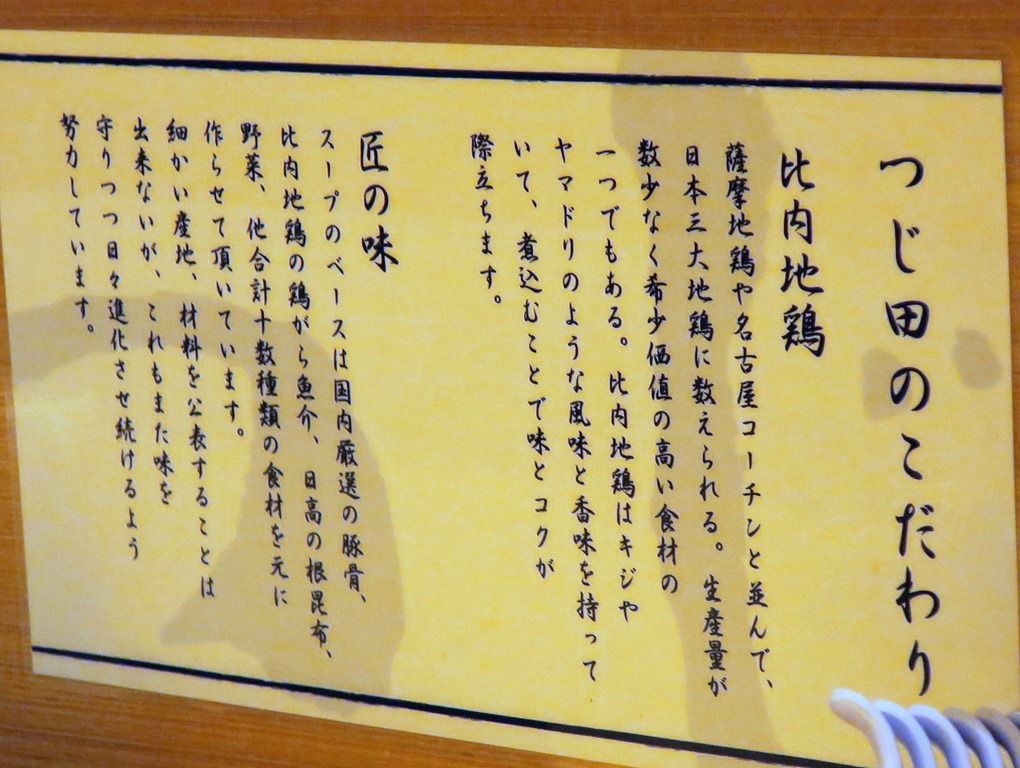 つじ田のこだわり
比内地鶏
薩摩地鶏や名古屋コーチンと並んで、
日本三大地鶏に数えられる。生産量が
数少なく希少価値の高い食材の
一つでもある。比内地鶏はキジや
ヤマドリのような風味と香味を持って
いて、煮込むことで味とコクが
際立ちます。
匠の味
スープのベースは国内厳選の豚骨、
比内地鶏の鶏がら魚介、日高の根昆布、
野菜、他合計十数種類の食材を元に
作らせて頂いています。
細かい産地、材料を公表することは
出来ないが、これもまた味を
守りつつ日々進化させ続けるよう
努力しています。